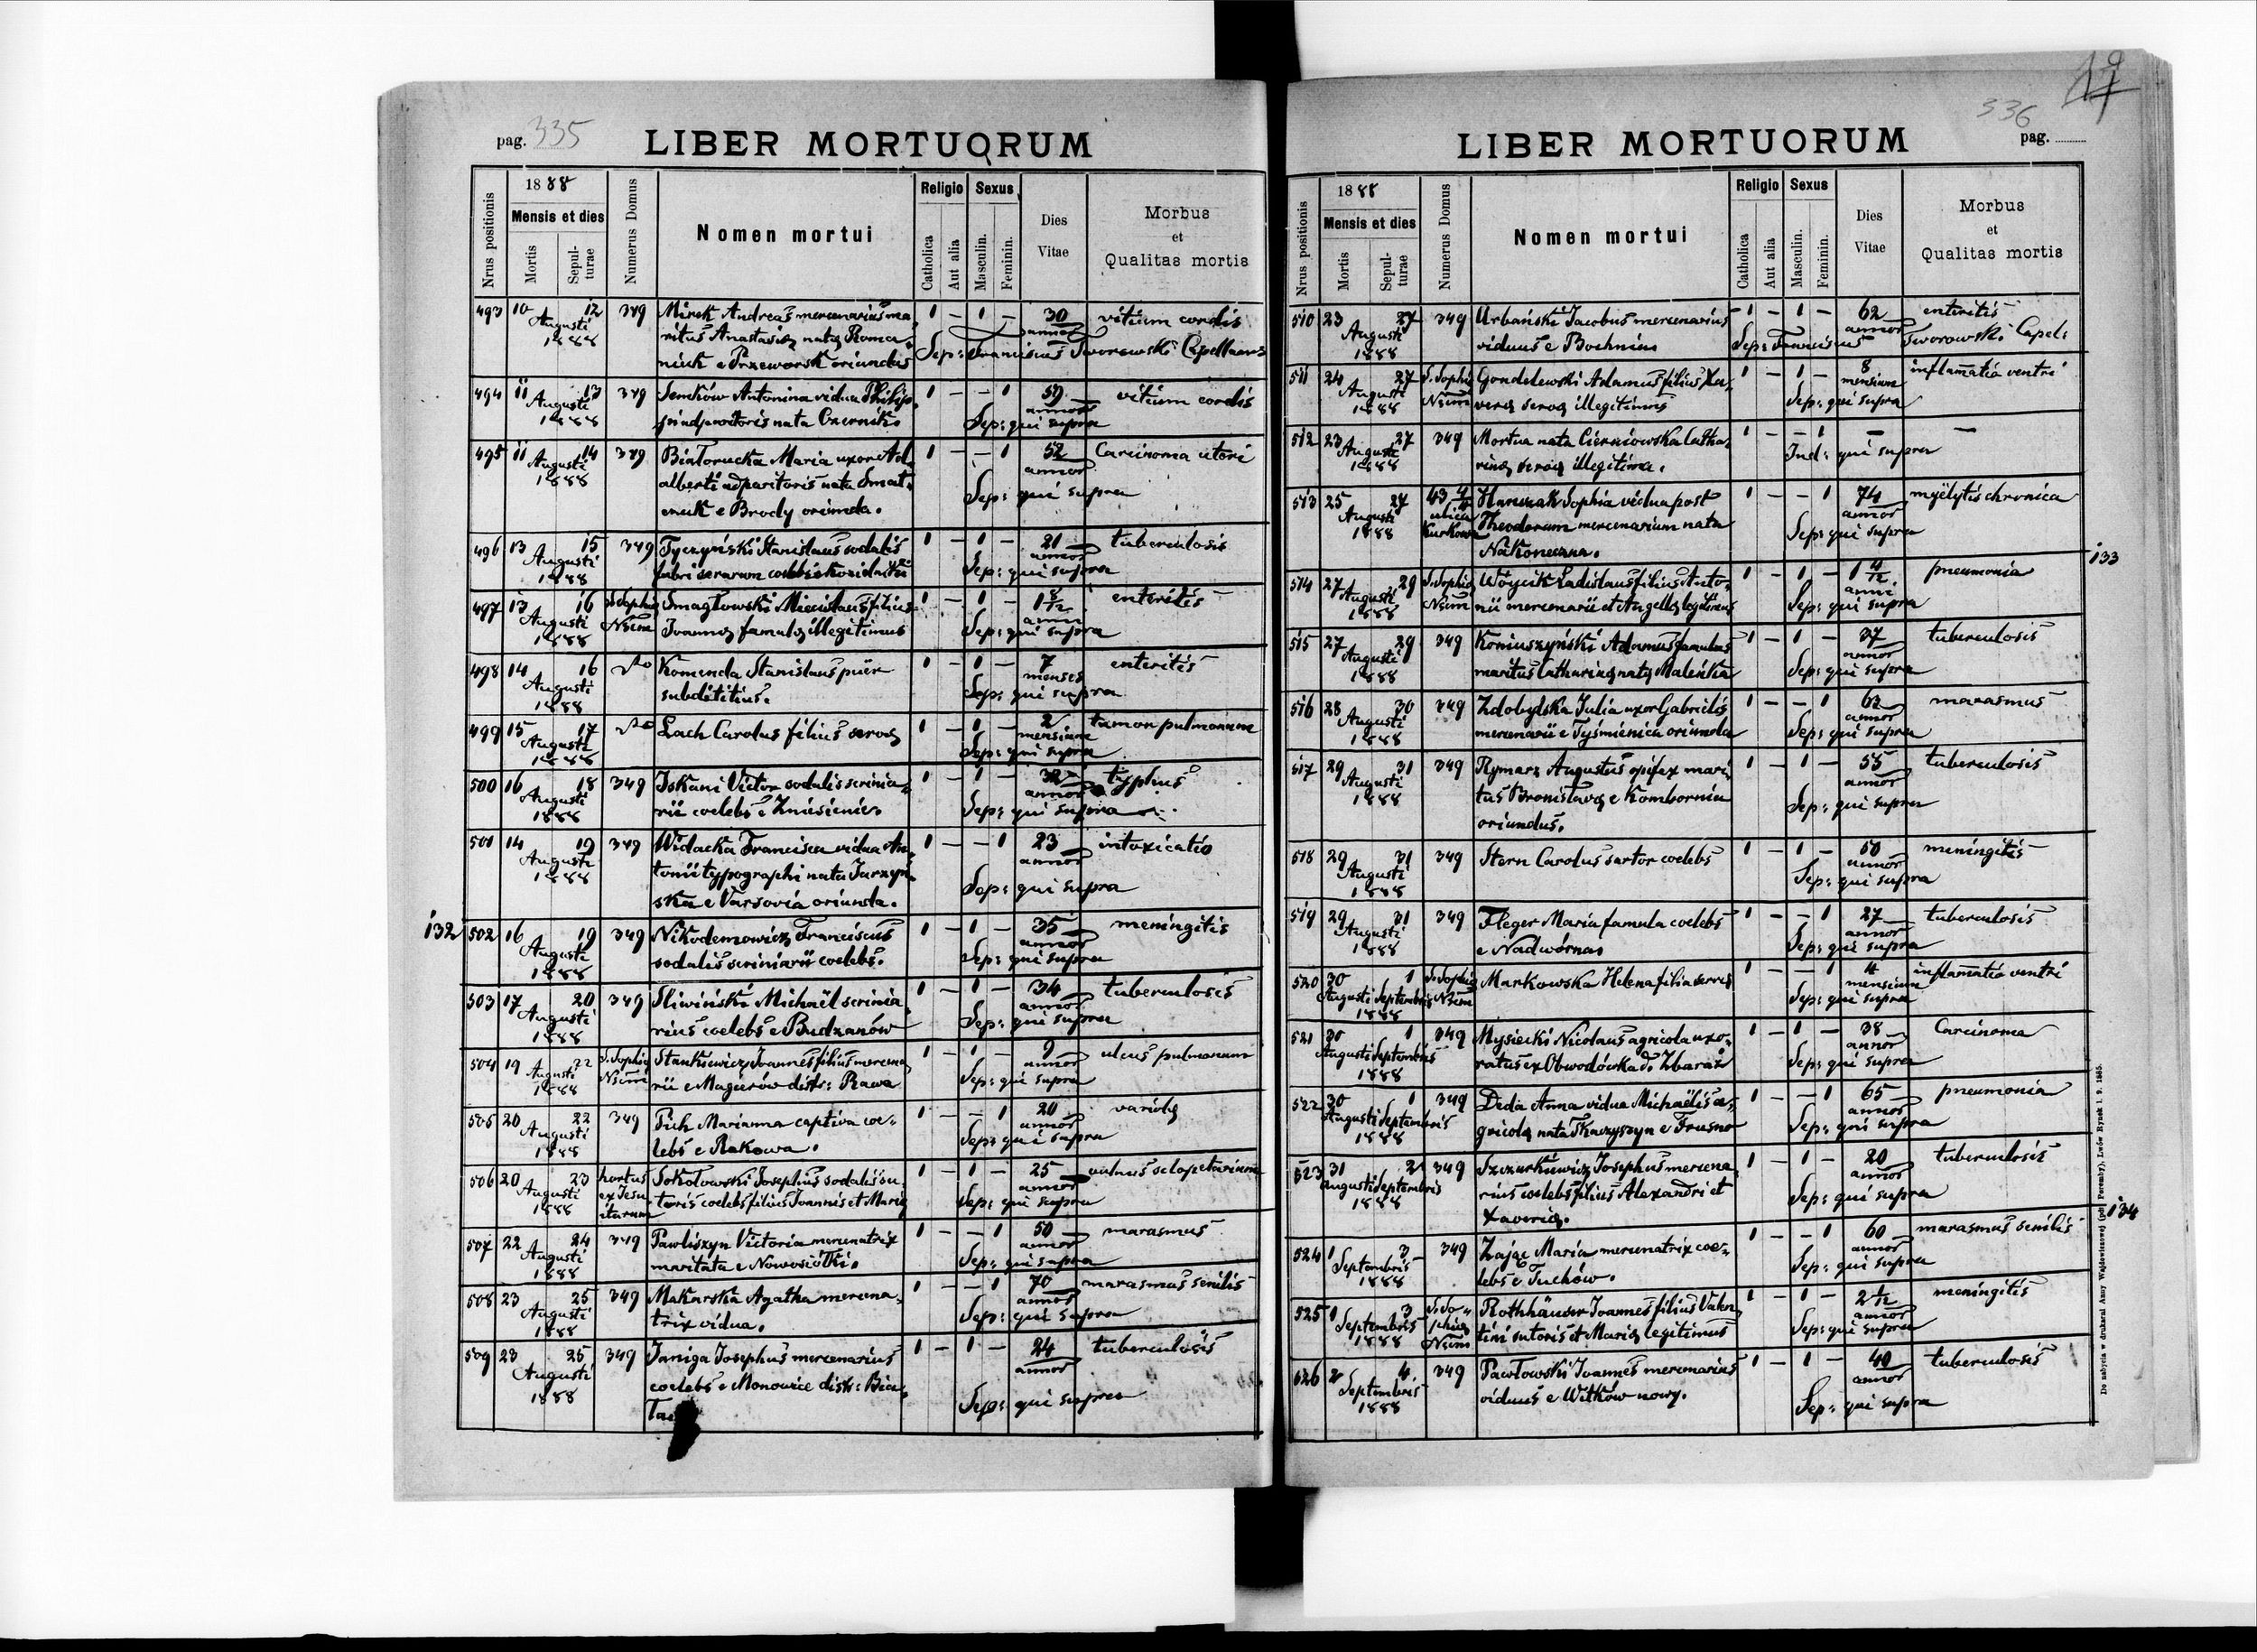 pag. 335
LIBER MORTUORUM
Nrus positionis
1888
Mensis et dies
Mortis
Sepulturae
Numerus Domus
Nomen mortui
Religio
Catholica
Aut alia
Sexus
Masculin.
Feminin.
Dies
Vitae
Morbus
et
Qualitas mortis
493 10 12 349 Mirek Andreas mercenarius ma- 1 – 1 – 30 vitium cordis
Augusti ritus Anastasiæ natæ Roma- annor
1888 niuk e Przeworsk oriundus Sep: Franciscus Tworowski Capellanus
494 11 13 349 Semków Antonina vidua Philip- 1 – – 1 59 vitium cordis
Augusti pi adparitoris nata Czernik annor
1888 Sep: qui supra
495 11 14 349 Białorucka Maria uxor Ad- 1 – – 1 52 Carcinoma uteri
Augusti alberti adparitoris nata annor
1888 e Brody oriunda. Sep: qui supra
496 13 15 349 Tyczyński Stanislaus sodalis 1 – 1 – 21 tuberculosis
Augusti fabri serarum coelebs annor
1888 Sep: qui supra
497 13 16 S. Sophiæ Smagłowski Miecislaus filius 1 – 1 – 1 8/12 enteritis
Augusti Nsum Joannæ famulæ illegitimus anni
1888 Sep: qui supra
498 14 16 dto Komenda Stanislaus puer 1 – 1 – 7 enteritis
Augusti subdititius. menses
1888 Sep: qui supra
499 15 17 dto Lach Carolus filius servæ 1 – 1 – 2 tumor pulmonum
Augusti mensium
1888 Sep: qui supra
500 16 18 349 Iskani Victor sodalis scrinia- 1 – 1 – 32 typhus
Augusti rii coelebs e Zniesienie. annor
1888 Sep: qui supra
501 14 19 349 Widacka Francisca vidua An- 1 – – 1 23 intoxicatio
Augusti tonii typographi nata Jarzyn- annor
1888 ska e Varsovia oriunda. Sep: qui supra
132 502 16 19 349 Nikodemowicz Franciscus 1 – 1 – 35 meningitis
Augusti sodalis scriniarii coelebs. annor
1888 Sep: qui supra
503 17 20 349 Sliwiński Michaël scrinia- 1 – 1 – 34 tuberculosis
Augusti rius coelebs e Budzanów annor
1888 Sep: qui supra
504 19 22 S. Sophiæ Stankiewicz Joannes filius mercena- 1 – 1 – 9 ulcus pulmonum
Augusti Nsum rii e Magierów distr: Rawa annor
1888 Sep: qui supra
505 20 22 349 Puh Marianna captiva coe- 1 – – 1 20 variolæ
Augusti lebs e Rakowa. annor
1888 Sep: qui supra
506 20 23 hortus Sokołowski Josephus sodalis su- 1 – 1 – 25 vulnus sclopetarium
Augusti ex Jesu- toris coelebs filius Joannis et Mariæ annor
1888 itarum Sep: qui supra
507 22 24 349 Pawliszyn Victoria mercenatrix 1 – – 1 50 marasmus
Augusti maritata e Nowosiółki. annor
1888 Sep: qui supra
508 23 25 349 Makarska Agatha mercena- 1 – – 1 70 marasmus senilis
Augusti trix vidua. annor
1888 Sep: qui supra
509 23 25 349 Janiga Josephus mercenarius 1 – 1 – 24 tuberculosis
Augusti coelebs e Monowice distr: Bia- annor
1888 Sep: qui supra
336
pag.
LIBER MORTUORUM
Nrus positionis
1888
Mensis et dies
Mortis
Sepulturae
Numerus Domus
Nomen mortui
Religio
Catholica
Aut alia
Sexus
Masculin.
Feminin.
Dies
Vitae
Morbus
et
Qualitas mortis
510 23 27 349 Urbański Jacobus mercenarius 1 – 1 – 62 enteritis
Augusti viduus e Bochnia annor
1888 Sep: Franciscus Tworowski Capel:
511 24 27 S. Sophiæ Gondelewski Adamus filius Xa- 1 – 1 – 8 inflamatio ventri
Augusti Nsum veræ servæ illegitimus mensium
1888 Sep: qui supra
512 23 27 349 Mortua nata Cierniowska Catha- 1 – – 1 – –
Augusti rinæ servæ illegitima. Ind: qui supra
1888
513 25 27 43 4/4 Hanczak Sophia vidua post 1 – – 1 74 myëlytis chronica
Augusti ulica Theodorum mercenarium nata annor
1888 Kurkowa Nakoneczna. Sep: qui supra
133
514 27 29 S. Sophiæ Wóycik Ladislaus filius Anto- 1 – 1 – 1 4/12 pneumonia
Augusti Nsum nii mercenarii et Angelæ legitimus anni
1888 Sep: qui supra
515 27 29 349 Koniuszyński Adamus famulus 1 – 1 – 37 tuberculosis
Augusti maritus Catharinæ natæ Maleńka annor
1888 Sep: qui supra
516 28 30 349 Zdobylska Julia uxor Gabrielis 1 – – 1 62 marasmus
Augusti mercenarii e Tyśmienica oriunda annor
1888 Sep: qui supra
517 29 31 349 Rymarz Augustus opifex mari- 1 – 1 – 55 tuberculosis
Augusti tus Bronisławæ e Kombornia annor
1888 oriundus. Sep: qui supra
518 29 31 349 Stern Carolus sartor coelebs 1 – 1 – 50 meningitis
Augusti annor
1888 Sep: qui supra
519 29 31 349 Fleger Maria famula coelebs 1 – – 1 27 tuberculosis
Augusti e Nadwórna annor
1888 Sep: qui supra
520 30 1 S. Sophiæ Markowska Helena filia servæ 1 – – 1 4 inflamatio ventri
Augusti Septembris Nsum mensium
1888 Sep: qui supra
521 30 1 349 Mysiecki Nicolaus agricola uxo- 1 – 1 – 38 Carcinoma
Augusti Septembris ratus ex Obwodówka d. Zbaraż annor
1888 Sep: qui supra
522 30 1 349 Dida Anna vidua Michaëlis a- 1 – – 1 65 pneumonia
Augusti Septembris gricolæ nata Tkaczyszyn e Frusno annor
1888 Sep: qui supra
523 31 2 349 Szczurkiewicz Josephus mercena- 1 – 1 – 20 tuberculosis
Augusti Septembris rius coelebs filius Alexandri et annor
1888 Xaveriæ. Sep: qui supra
134
524 1 3 349 Zając Maria mercenatrix coe- 1 – – 1 60 marasmus senilis
Septembris lebs e Tuchów. annor
1888 Sep: qui supra
525 1 3 S. So- Rothhäuser Joannes filius Valen- 1 – 1 – 2 1/12 meningitis
Septembris phiæ tini sutoris et Mariæ legitimus annor
1888 Nsum Sep: qui supra
526 2 4 349 Pawłowski Joannes mercenarius 1 – 1 – 40 tuberculosis
Septembris viduus e Witków nowy. annor
1888 Sep: qui supra